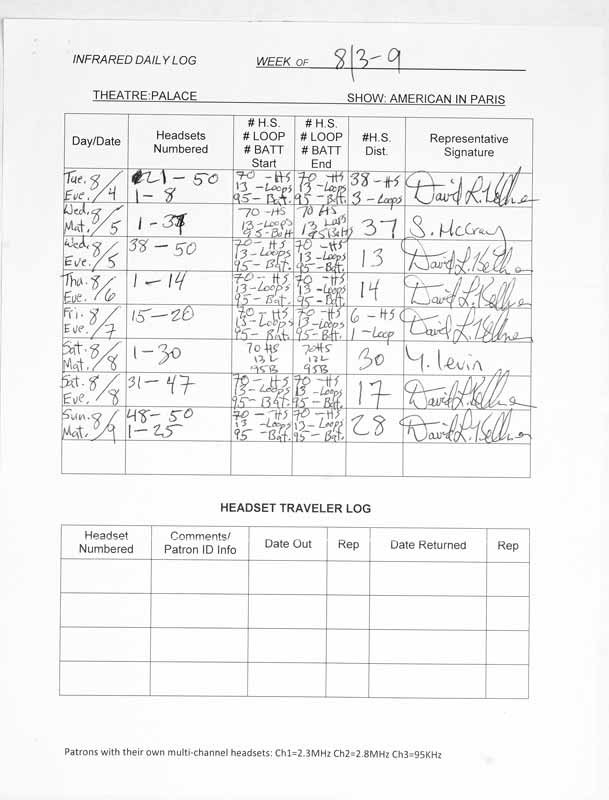 INFRARED DAILY LOG WEEK OF 8/3-9
THEATRE:PALACE SHOW: AMERICAN IN PARIS
Day/Date Headsets Numbered # H.S. # LOOP # BATT Start # H.S. # LOOP # BATT End #H.S. Dist. Representative Signature
Tue. 8/4 Eve. 21-50 1-8 70-HS 13-Loops 95-Bat. 70-HS 13-Loops 95-Bat. 38-HS 3-Loops David L. Kellner
Wed. 8/5 Mat. 1-37 70-HS 13-Loops 95-Batt 70 HS 13 Loops 95 Batts 37 S. McCray
Wed. 8/5 Eve. 38-50 70-HS 13-Loops 95-Bat. 70-HS 13-Loops 95-Bat. 13 David L. Kellner
Thu. 8/6 Eve. 1-14 70-HS 13-Loops 95-Bat. 70-HS 13-Loops 95-Bat. 14 David L. Kellner
Fri. 8/7 Eve. 15-20 70-HS 13-Loops 95-Bat. 70-HS 13-Loops 95-Bat. 6-HS 1-Loop David L. Kellner
Sat. 8/8 Mat. 1-30 70HS 13L 95B 70HS 12L 95B 30 Y. Levin
Sat. 8/8 Eve. 31-47 70-HS 13-Loops 95-Bat. 70-HS 13-Loops 95-Bat. 17 David L. Kellner
Sun. 8/9 Mat. 48-50 1-25 70-HS 13-Loops 95-Bat. 70-HS 13-Loops 95-Bat. 28 David L. Kellner
HEADSET TRAVELER LOG
Headset Numbered Comments/ Patron ID Info Date Out Rep Date Returned Rep
Patrons with their own multi-channel headsets: Ch1=2.3MHz Ch2=2.8MHz Ch3=95KHz